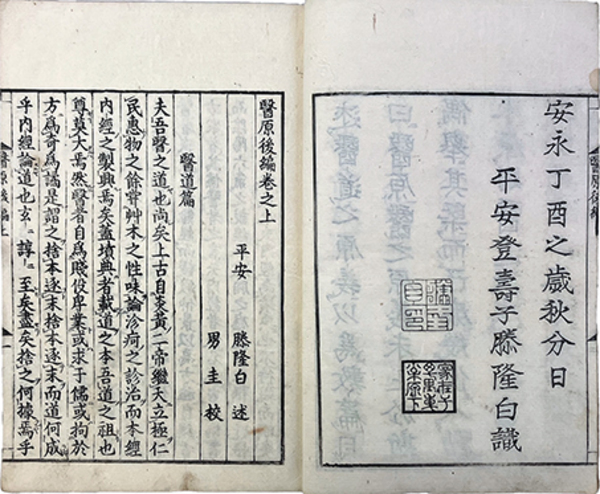 安永丁酉之歲秋分日
平安登壽子滕隆白識
醫原後編卷之上
平安 滕隆白 述
男 圭 校
醫道篇
夫吾醫之道也尚矣上古自炎黃二帝繼天立極仁
民惠物之餘甞艸木之性味論沴疴之診治而本經
內經之製興焉矣蓋墳典者載道之本吾道之祖也
尊莫大焉然醫者自爲賤伎卑業或求于儒或拘於
方爲奇爲譎是謂之捨本逐末捨本逐末而道何成
乎內經論道也玄〻諄〻至矣盡矣捨之何據焉乎
醫原後編上